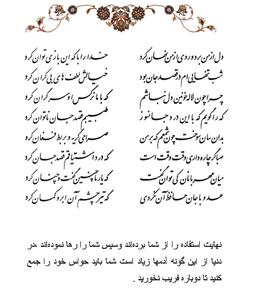 دل از من برد و روی از من نهان کرد خدا را با که این بازی توان کرد
شب تنهاییم در قصد جان بود خیالش لطف های بی کران کرد
چرا چون لاله خونین دل نباشم که با ما نرگس او سرگران کرد
که را گویم که با این درد جان سوز طبیبم قصد جان ناتوان کرد
بدان سان سوخت چون شمعم که بر من صراحی گریه و بربط فغان کرد
صبا گر چاره داری وقت وقت است که درد اشتیاقم قصد جان کرد
میان مهربانان کی توان گفت که یار ما چنین گفت و چنان کرد
عدو با جان حافظ آن نکردی که تیر چشم آن ابرو کمان کرد
نهایت استفاده را از شما برده‌اند وسپس شما را رها نموده‌اند ،در
دنیا از این گونه آدمها زیاد است شما باید حواس خود را جمع
کنید تا دوباره فریب نخورید .